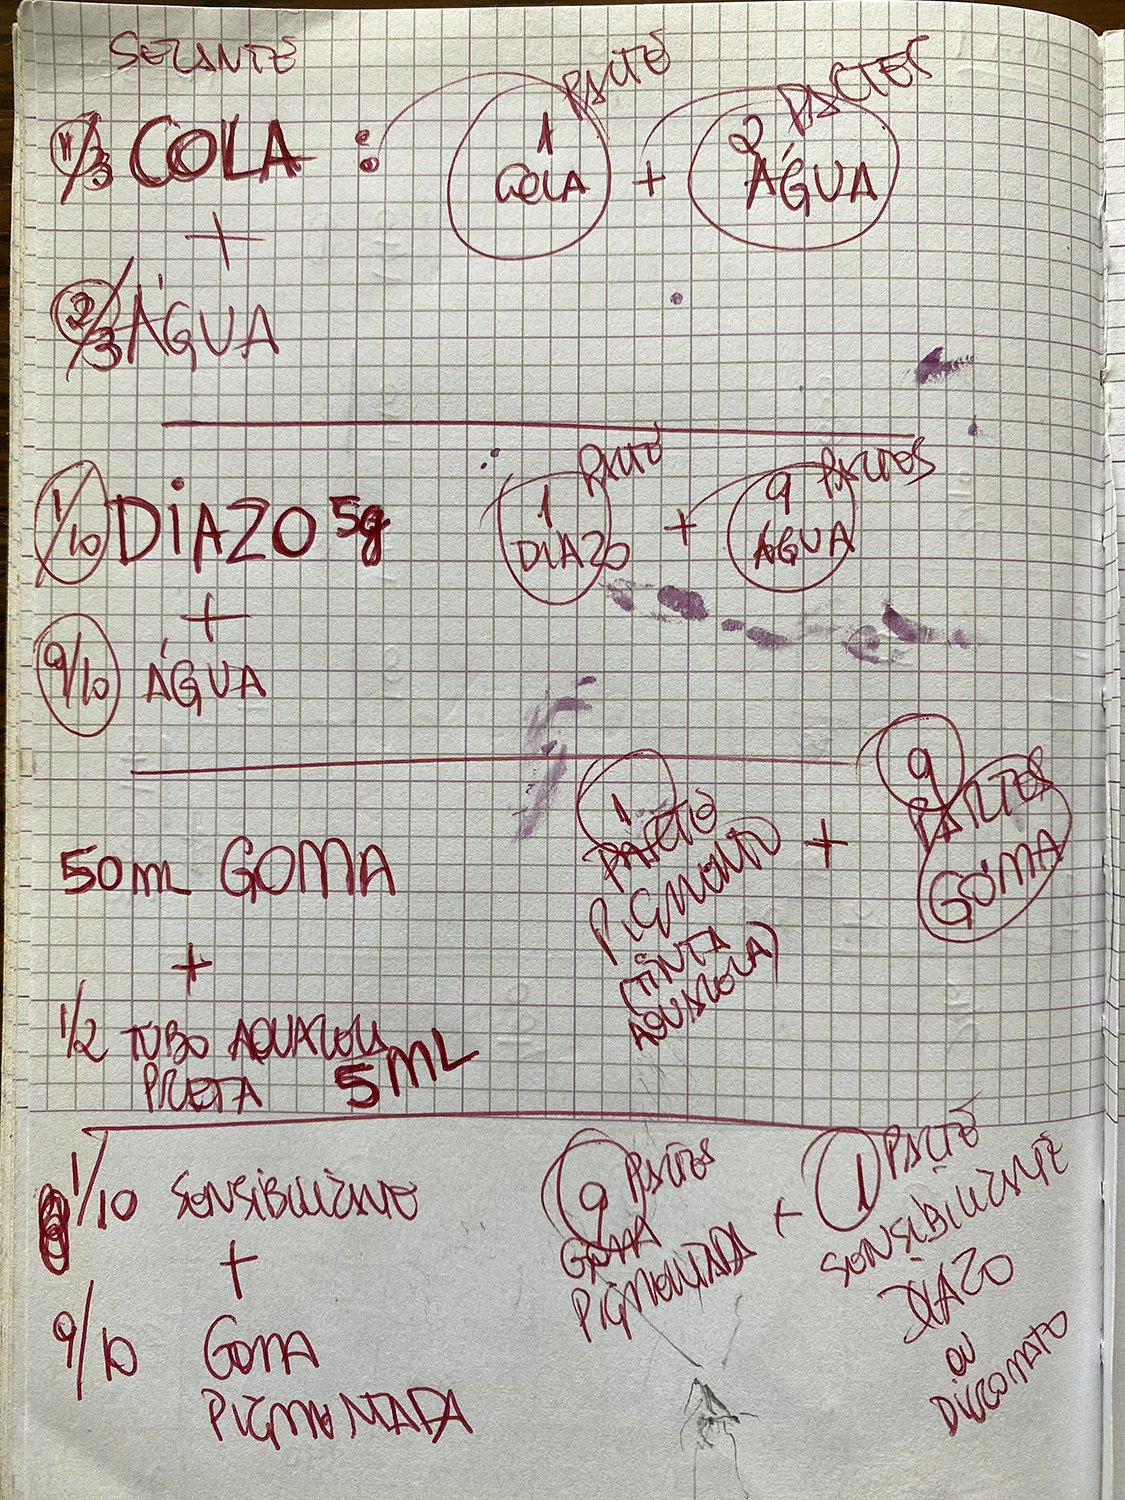 SELANTE
1/3 COLA : 1 PARTE COLA + 2 PARTES ÁGUA
+
2/3 ÁGUA
1/10 DIAZO 5g 1 PARTE DIAZO + 9 PARTES ÁGUA
+
9/10 ÁGUA
50 mL GOMA
+
1/2 TUBO AQUARELA
PRETA 5 mL
1
PARTE
PIGMENTO
(TINTA
AQUARELA)
+
9
PARTES
GOMA
1/10 SENSIBILIZANTE
+
9/10 GOMA
PIGMENTADA
9 PARTES
GOMA
PIGMENTADA
+
1 PARTE
SENSIBILIZANTE
DIAZO
OU
DICROMATO